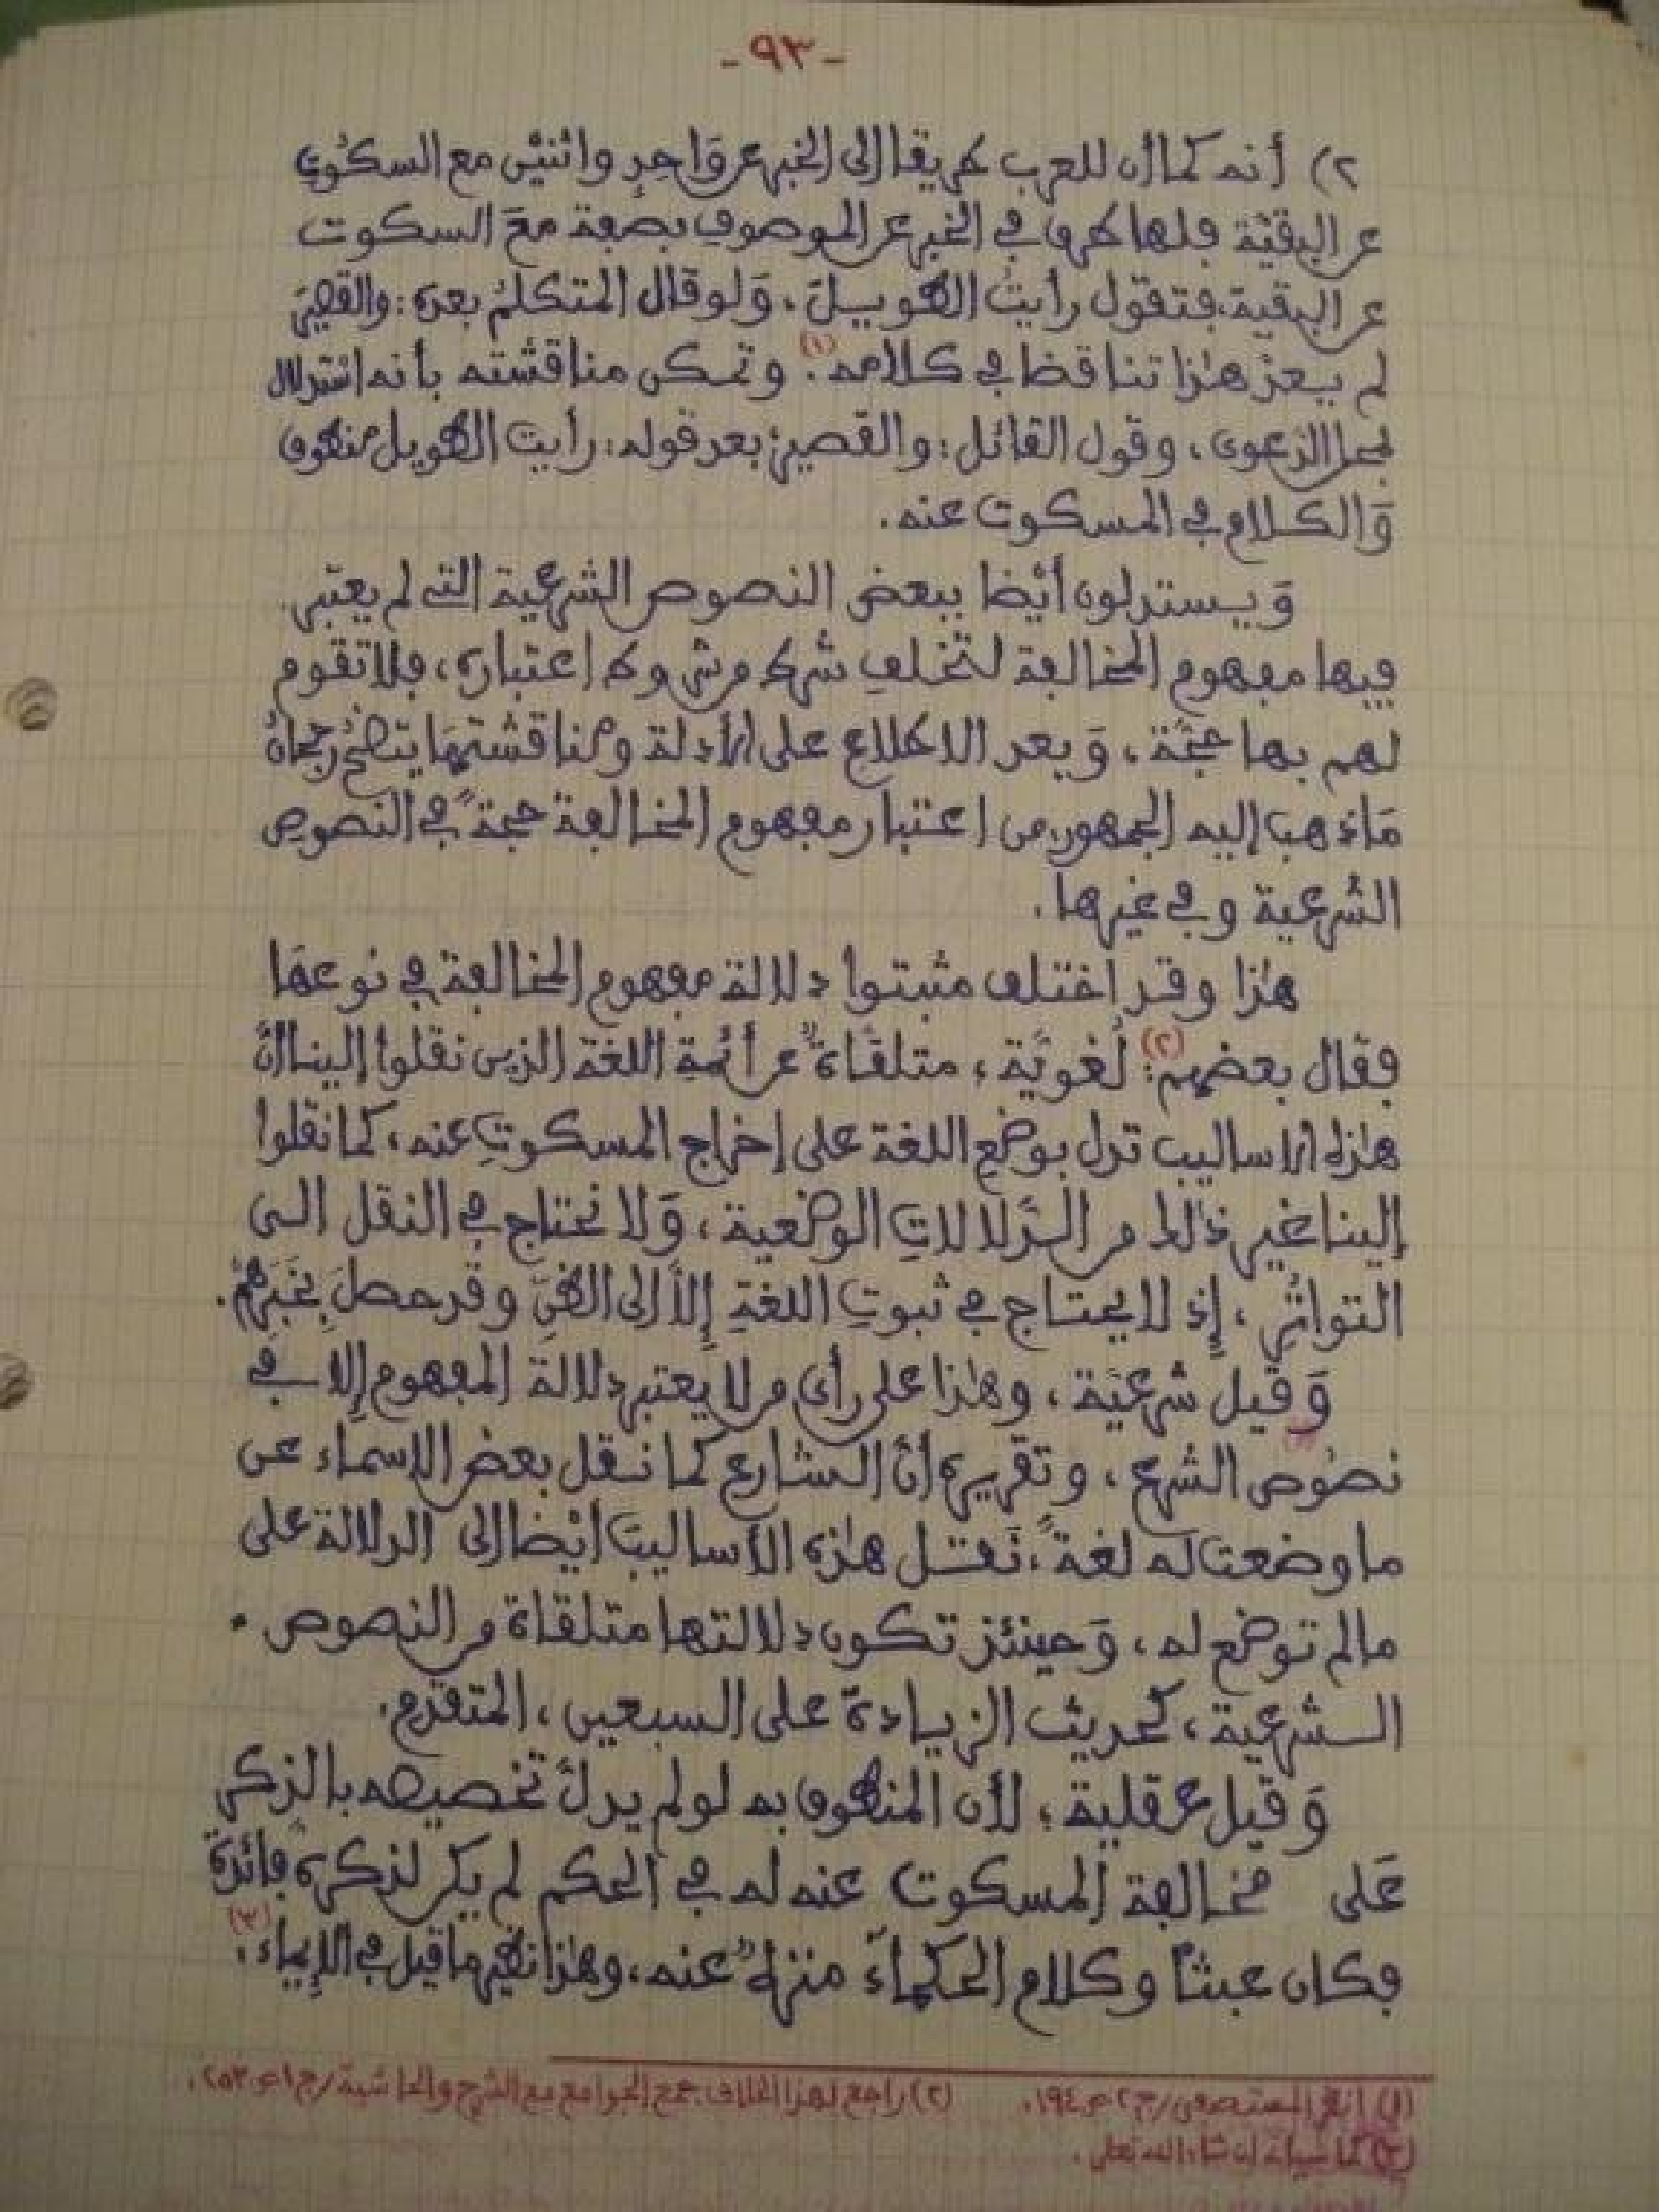 -٩٣-
٢) أنه كما أن للعرب طريقا إلى الخبر عن وَاحدٍ واثنين مع السكوتِ
عن البقيّة فلها طرق في الخبر عن الموصوفِ بصفة معَ السكوت
عن البقية، فتقول رأيتُ الطويلَ، وَلو قال المتكلمُ بعده: والقصيرَ
لم يعدّ هٰذا تناقضا في كلامه (١). وتمكن مناقشته بأنه استدلال
بمحل الدعوى، وقول القائل: والقصيرَ بعد قوله: رأيت الطويل منطوق
وَالكلام في المسكوت عنه.
وَيستدلون أيضا ببعض النصوص الشرعية التي لم يعتبر
فيها مفهوم المخالفة لتخلفِ شرط من شروط اعتباره، فلا تقوم
لهم بها حجّة، وَبعد الاطلاع على الأدلة ومناقشتها يتضحُ رجحانُ
مَا ذهب إليه الجمهور من اعتبار مفهوم المخالفة حجةً في النصوص
الشرعية وفي غيرها.
هٰذا وقد اختلف مثبتوا دلالة مفهوم المخالفة في نوعهَا
فقال بعضهم (٢): لُغويّة، متلقّاةٌ عن أئمة اللغة الذين نقلوا إلينا أنّ
هٰذه الأساليب تدل بوضع اللغة على إخراج المسكوتِ عنه، كما نقلوا
إلينا غير ذٰلك من الدَّلالاتِ الوضعية، وَلا نحتاج في النقل الى
التواتُر، إذ لا يحتاج في ثبوتِ اللغةِ إلاّ إلى الظنِّ وقد حصلَ بِخَبَرِهمْ.
وَقيل شرعيَة، وهٰذا على رأي من لا يعتبر دلالة المفهوم إلا في
نصُوص الشرع، وتقريره أنّ الشارع كما نقل بعض الاسماء عن
ما وضعت له لغةً، نَقَل هٰذه الأساليبَ ايْضا إلى الدلالة على
ما لم توضع له، وَحينئذ تكون دلالتها متلقاة من النصوص
الشرعية، كحديث الزيادة على السبعين، المتقدِّم.
وَقيل عقلية؛ لأن المنطوق به لو لم يدلّ تخصيصه بالذكر
عَلى مخالفة المسكوت عنه له في الحكم لم يكن لذكره فائدة
فكان عبثاً وكلام الحكماءِ منزهٌ عنه، وهٰذا نظير ما قيل في الإيماء (٣).
(١) انظر المستصفى/ ج ٢ ص ١٩٤. (٢) راجع لهذا الخلاف: جمع الجوامع مع الشرح والحاشية/ ج ١ ص ٢٥٣.
(٣) كما سيأتي إن شاء الله تعالى.